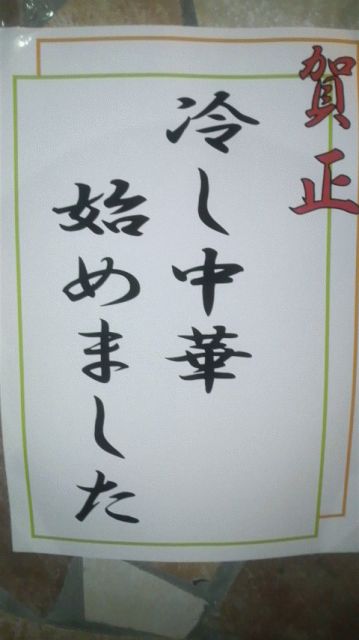 賀正
冷し中華
始めました